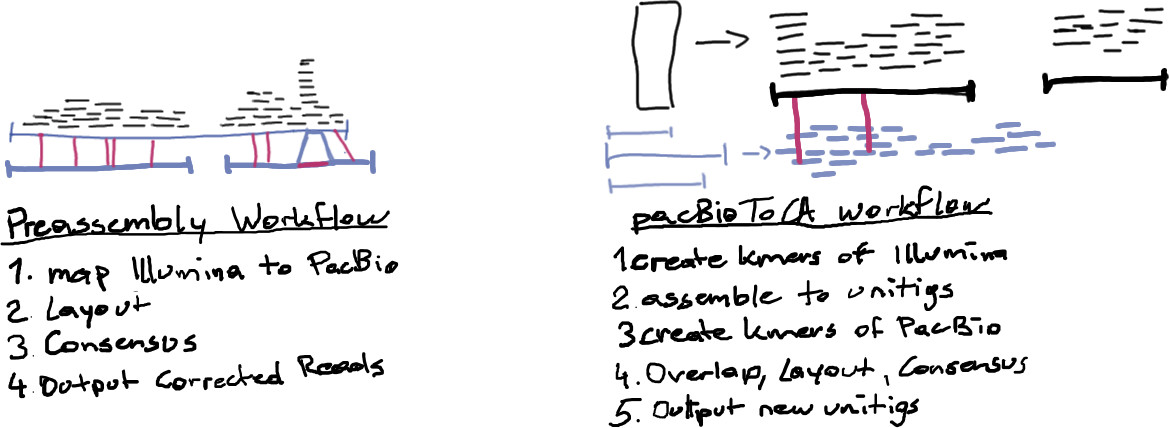 Preassembly Workflow
1. map Illumina to PacBio
2. Layout
3. Consensus
4. Output Corrected Reads
pacBioToCA workflow
1. create kmers of Illumina
2. assemble to unitigs
3 create kmers of PacBio
4. Overlap, Layout, Consensus
5. Output new unitigs